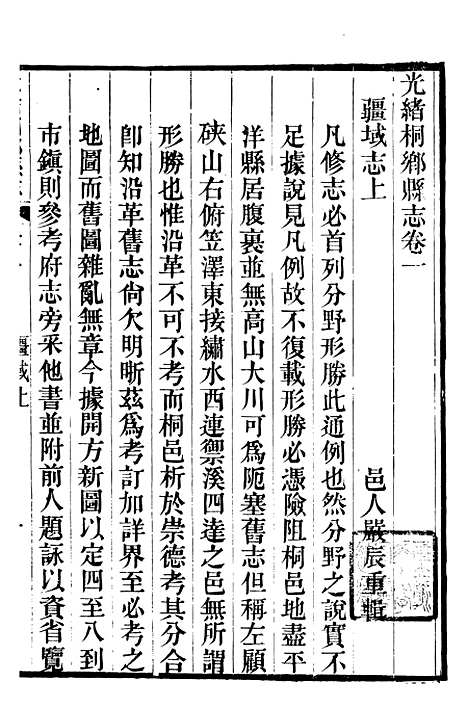 光緒桐鄉縣志卷一
疆域志上
邑人嚴辰重輯
凡修志必首列分野形勝此通例也然分野之說實不
足據說見凡例故不復載形勝必憑險阻桐邑地盡平
洋縣居腹裏並無高山大川可爲阨塞舊志但稱左顧
硤山右俯笠澤東接繡水西連禦溪四達之邑無所謂
形勝也惟沿革不可不考而桐邑析於崇德考其分合
卽知沿革舊志尙欠明晰茲爲考訂加詳界至必考之
地圖而舊圖雜亂無章今據開方新圖以定四至八到
市鎭則參考府志旁采他書並附前人題詠以資省覽
疆域上